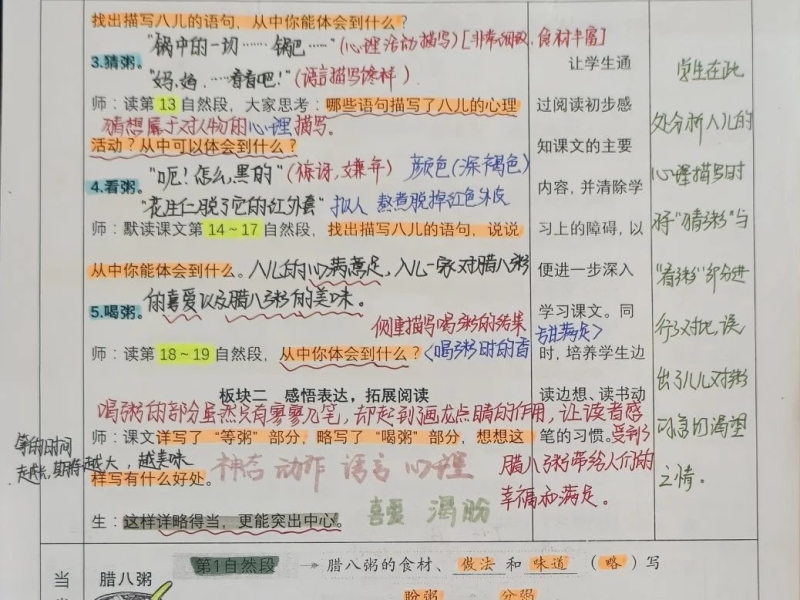 找出描写八儿的语句，从中你能体会到什么？
"锅中的一切……锅巴…"(心理活动描写)[非常细致、食材丰富]
3.猜粥。
"妈,妈,……看看吧！"(语言描写馋样)
师：读第13自然段，大家思考：哪些语句描写了八儿的心理
猜想属于对人物的心理描写。
活动？从中可以体会到什么？
4.看粥。
"呃！怎么,黑的"(惊讶,嫌弃) 颜色(深褐色)
"花生仁脱了它的红外套" 拟人 熬煮脱掉红色外皮
师：默读课文第14~17自然段，找出描写八儿的语句，说说
从中你能体会到什么。八儿的心满意足,八儿一家对腊八粥
5.喝粥。的喜爱以及腊八粥的美味。
侧重描写喝粥的结果
师：读第18~19自然段，从中你体会到什么？<喝粥时的香甜满足>
板块二 感悟表达，拓展阅读
喝粥的部分虽然只有寥寥几笔，却起到了画龙点睛的作用，让读者感
受到了
腊八粥带给人们的
幸福和满足。
师：课文详写了"等粥"部分，略写了"喝粥"部分，想想这
样写有什么好处。
等的时间
越长,期待越大，越美味
神态 动作 语言 心理
生：这样详略得当，更能突出中心。
喜爱 渴盼
让学生通
过阅读初步感
知课文的主要
内容，并清除学
习上的障碍，以
便进一步深入
学习课文。同
时，培养学生边
读边想、读书动
笔的习惯。
学生在此
处分析八儿的
心理描写时
将"猜粥"与
"看粥"部分进
行了对比,读
出了八儿对粥
的急切渴望
之情。
当
腊八粥
第1自然段→腊八粥的食材、做法和味道（略）写
盼粥 分粥